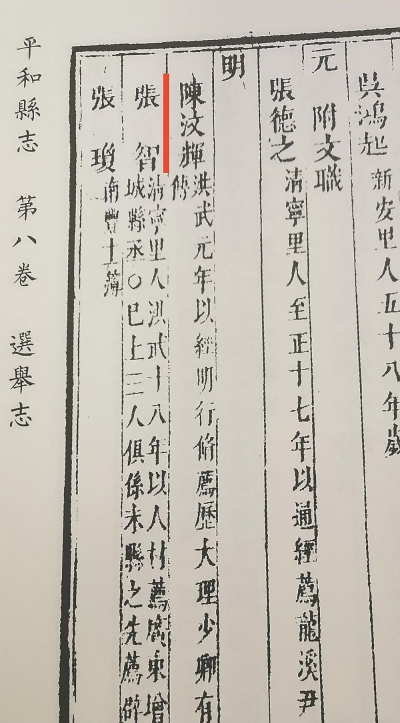 吳鴻起新安里人五十八年歲
元附文職
張德之清寧里人至正十七年以通經薦龍溪尹
明
陳汶輝洪武元年以經明行脩薦歷大理少卿有
傳
張智清寧里人洪武十八年以人材薦廣東增
城縣丞○已上三人俱係未縣之先薦辟
張瓊南豐主簿
平和縣志 第八卷 選舉志